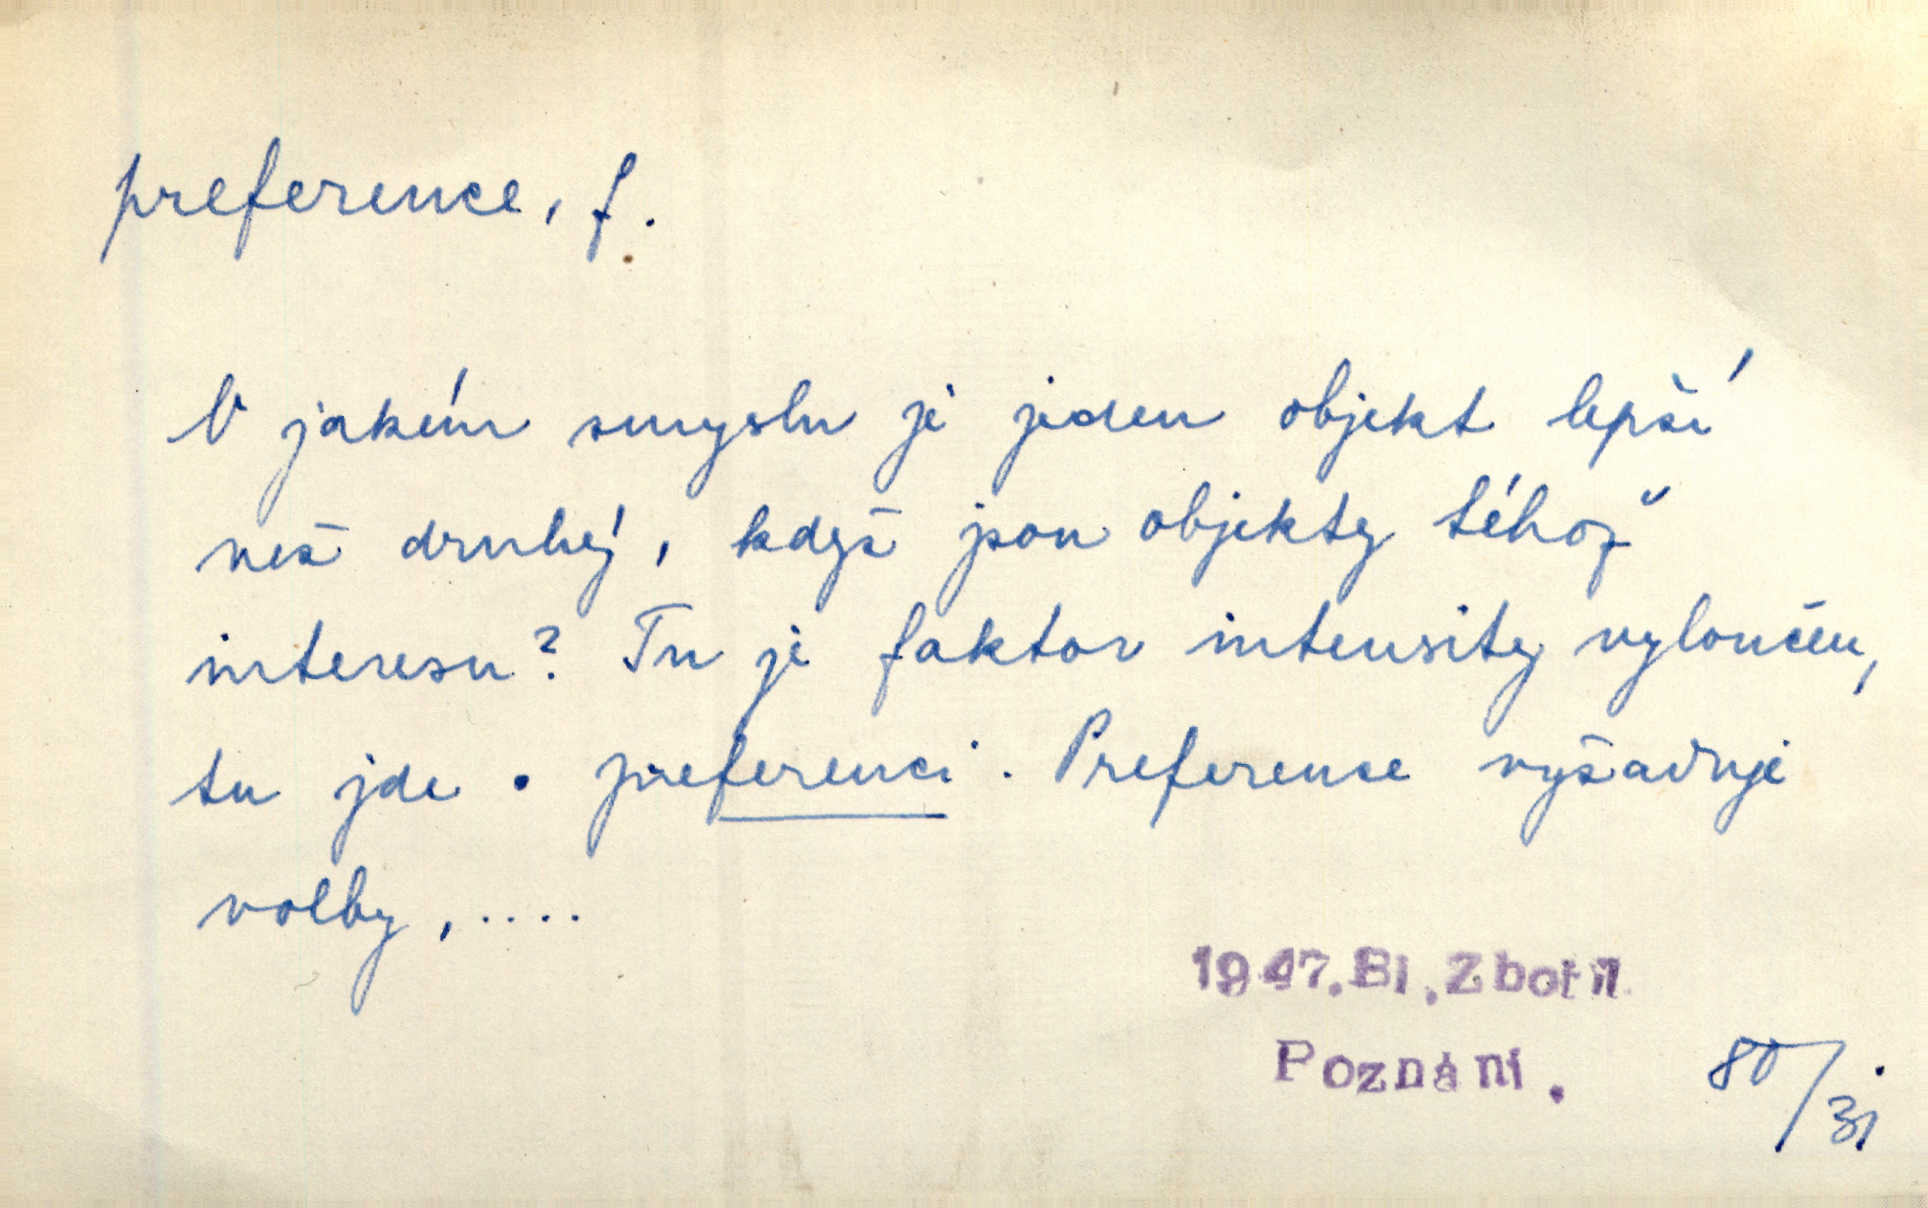 preference, f.
V jakém smyslu je jeden objekt lepší
než druhý, když jsou objekty téhož
interesu? Tu je faktor intensity vyloučen,
tu jde o preferenci. Preference vyžaduje
volby, ....
1947.Bl.Zbořil
Poznání.
80/3i